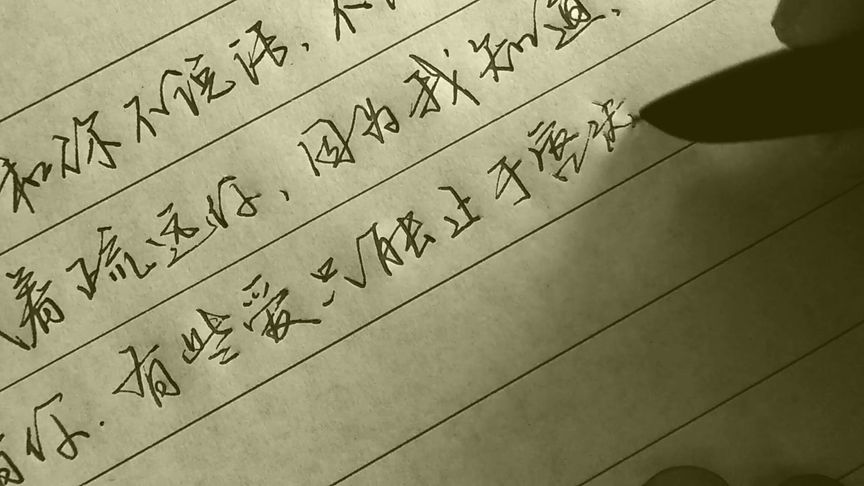 和你不说话，不
着疏远你，因为我知道，
你．有些爱只能止于唇